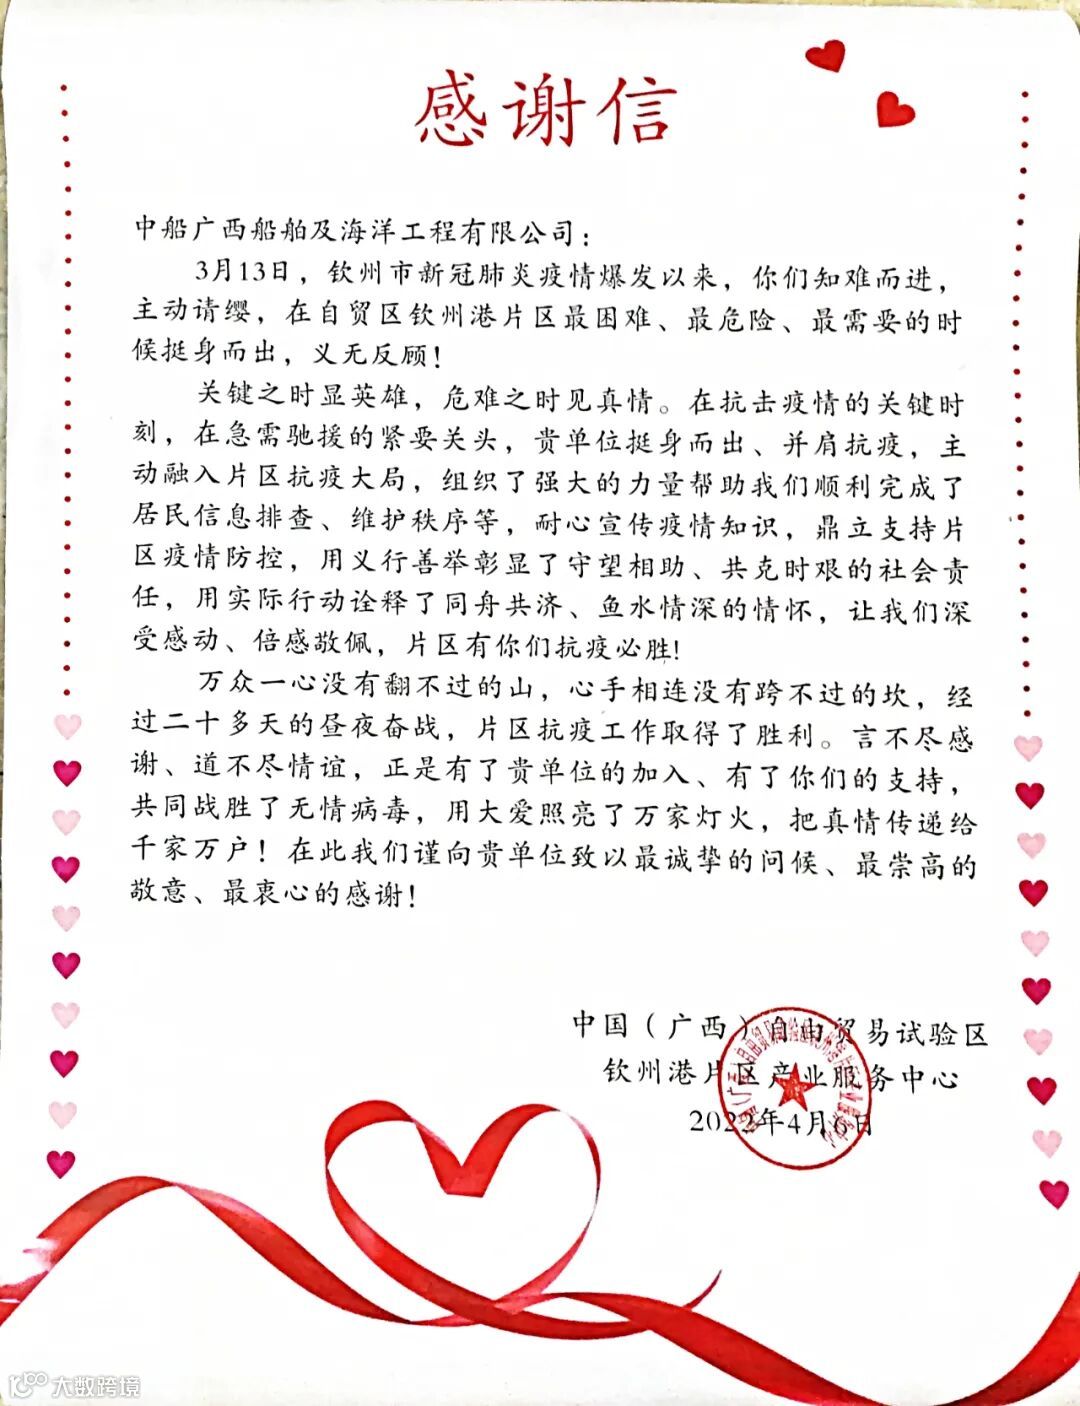 感谢信
中船广西船舶及海洋工程有限公司：
3月13日，钦州市新冠肺炎疫情爆发以来，你们知难而进，
主动请缨，在自贸区钦州港片区最困难、最危险、最需要的时
候挺身而出，义无反顾！
关键之时显英雄，危难之时见真情。在抗击疫情的关键时
刻，在急需驰援的紧要关头，贵单位挺身而出、并肩抗疫，主
动融入片区抗疫大局，组织了强大的力量帮助我们顺利完成了
居民信息排查、维护秩序等，耐心宣传疫情知识，鼎立支持片
区疫情防控，用义行善举彰显了守望相助、共克时艰的社会责
任，用实际行动诠释了同舟共济、鱼水情深的情怀，让我们深
受感动、倍感敬佩，片区有你们抗疫必胜！
万众一心没有翻不过的山，心手相连没有跨不过的坎，经
过二十多天的昼夜奋战，片区抗疫工作取得了胜利。言不尽感
谢、道不尽情谊，正是有了贵单位的加入、有了你们的支持，
共同战胜了无情病毒，用大爱照亮了万家灯火，把真情传递给
千家万户！在此我们谨向贵单位致以最诚挚的问候、最崇高的
敬意、最衷心的感谢！
中国（广西）自由贸易试验区
钦州港片区产业服务中心
2022年4月6日
大数跨境